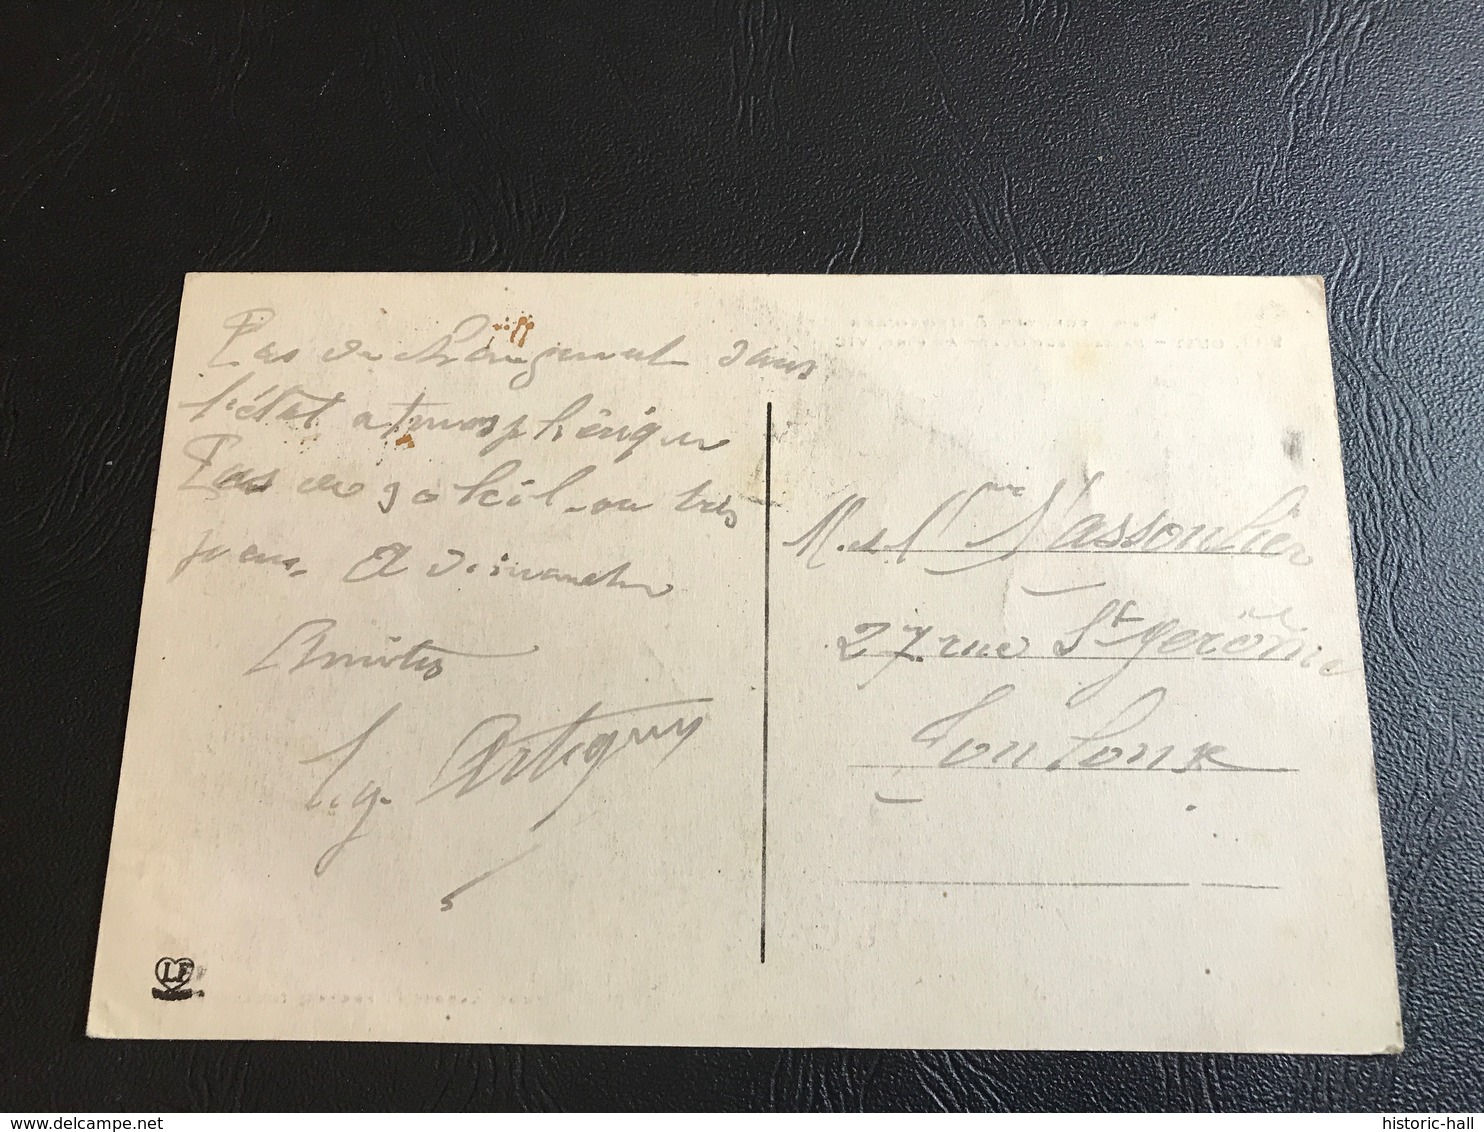 Pas de changement dans
l'état atmosphérique
Pas de soleil ou très
peu. A dimanche
Amitiés
Artiguy
M. et Mme Vassoulier
27 rue St Gérôme
Toulouse
LF
historic-hall